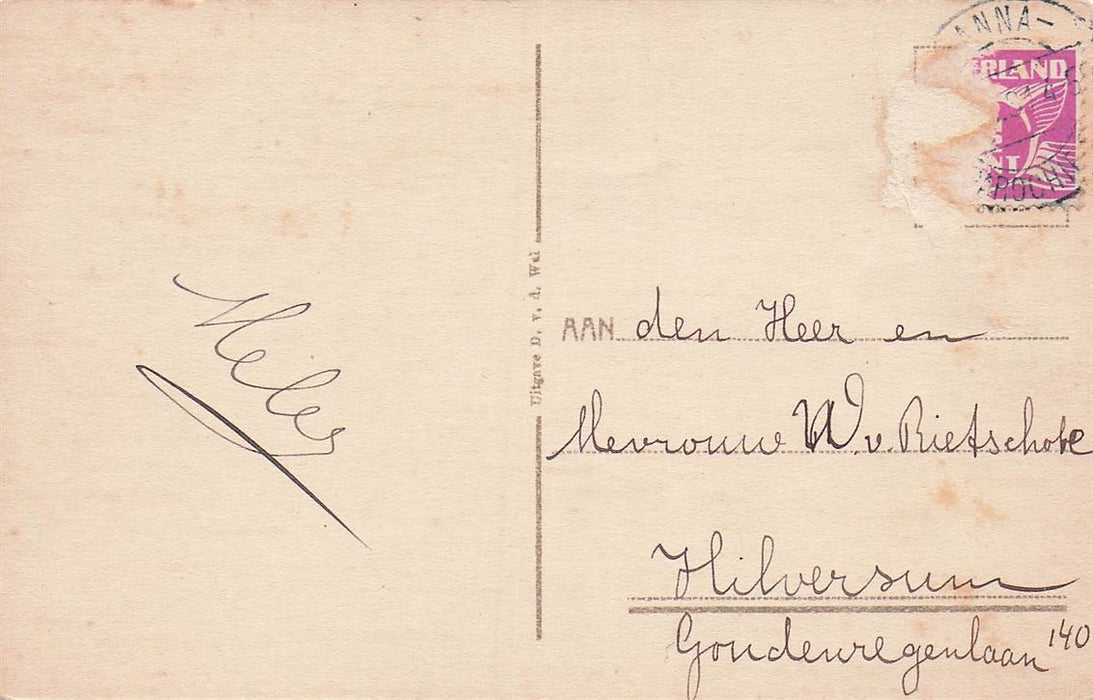 ANNA-
RLAND
NT
Uitgave D. v. d. Wal
AAN den Heer en
Mevrouw W. v. Rietschote
Hilversum
Goudenregenlaan 140